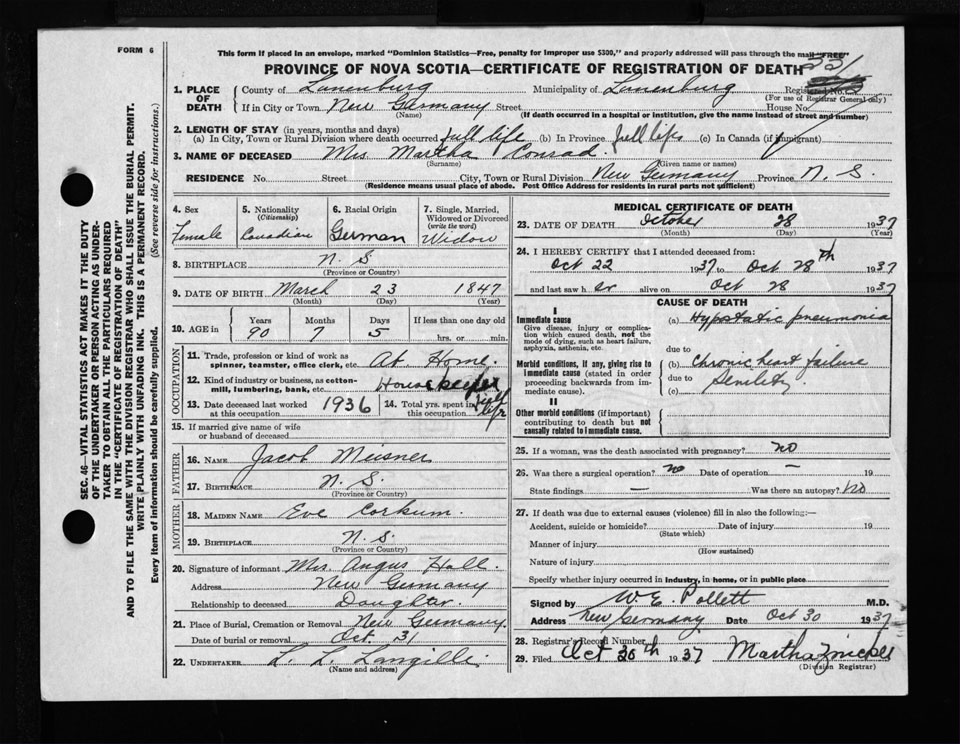 FORM 6
This form if placed in an envelope, marked "Dominion Statistics—Free, penalty for improper use $300," and properly addressed will pass through the mail "FREE"
PROVINCE OF NOVA SCOTIA—CERTIFICATE OF REGISTRATION OF DEATH 221
1. PLACE OF DEATH
County of Lunenburg Municipality of Lunenburg Registered No.
(For use of Registrar General only)
If in City or Town New Germany Street House No.
(Name) (If death occurred in a hospital or institution, give the name instead of street and number)
2. LENGTH OF STAY (in years, months and days)
(a) In City, Town or Rural Division where death occurred full life (b) In Province full life (c) In Canada (if immigrant)
3. NAME OF DECEASED Mrs Martha Conrad.
(Surname) (Given name or names)
RESIDENCE No. Street City, Town or Rural Division New Germany Province N. S.
(Residence means usual place of abode. Post Office Address for residents in rural parts not sufficient)
4. Sex Female
5. Nationality (Citizenship) Canadian
6. Racial Origin German
7. Single, Married, Widowed or Divorced (write the word) Widow
8. BIRTHPLACE N. S
(Province or Country)
9. DATE OF BIRTH March 23 1847
(Month) (Day) (Year)
10. AGE in Years 90 Months 7 Days 5 If less than one day old hrs. or min.
OCCUPATION
11. Trade, profession or kind of work as spinner, teamster, office clerk, etc. At Home.
12. Kind of industry or business, as cotton-mill, lumbering, bank, etc. House keeper
13. Date deceased last worked at this occupation 1936
14. Total yrs. spent in this occupation full life
15. If married give name of wife or husband of deceased
FATHER
16. NAME Jacob Meisner
17. BIRTHPLACE N. S.
(Province or Country)
MOTHER
18. MAIDEN NAME Eve Corkum.
19. BIRTHPLACE N. S.
(Province or Country)
20. Signature of informant Mrs. Angus Hall.
Address New Germany
Relationship to deceased Daughter.
21. Place of Burial, Cremation or Removal New Germany
Date of burial or removal Oct. 31
22. UNDERTAKER L. L. Langille
(Name and address)
MEDICAL CERTIFICATE OF DEATH
23. DATE OF DEATH October 28 1937
(Month) (Day) (Year)
24. I HEREBY CERTIFY that I attended deceased from:
Oct 22 1937 to Oct 28th 1937
and last saw her alive on Oct 28 1937
CAUSE OF DEATH
I
Immediate cause
Give disease, injury or complication which caused death, not the mode of dying, such as heart failure, asphyxia, asthenia, etc.
(a) Hypstatic pneumonia
due to
Morbid conditions, if any, giving rise to immediate cause (stated in order proceeding backwards from immediate cause).
(b) Chronic heart failure
due to Senility
(c)
II
Other morbid conditions (if important) contributing to death but not causally related to immediate cause.
25. If a woman, was the death associated with pregnancy? no
26. Was there a surgical operation? no Date of operation — 19
State findings — Was there an autopsy? no
27. If death was due to external causes (violence) fill in also the following:—
Accident, suicide or homicide? Date of injury 19
(State which)
Manner of injury
(How sustained)
Nature of injury
Specify whether injury occurred in industry, in home, or in public place
Signed by W E. Pollett M.D.
Address New Germany Date Oct 30 1937
28. Registrar's Record Number
29. Filed Oct 30th 1937 Martha Zwicker
(Division Registrar)
SEC. 46—VITAL STATISTICS ACT MAKES IT THE DUTY
OF THE UNDERTAKER OR PERSON ACTING AS UNDER-
TAKER TO OBTAIN ALL THE PARTICULARS REQUIRED
IN THE "CERTIFICATE OF REGISTRATION OF DEATH"
AND TO FILE THE SAME WITH THE DIVISION REGISTRAR WHO SHALL ISSUE THE BURIAL PERMIT.
WRITE PLAINLY WITH UNFADING INK. THIS IS A PERMANENT RECORD.
Every item of information should be carefully supplied. (See reverse side for instructions.)